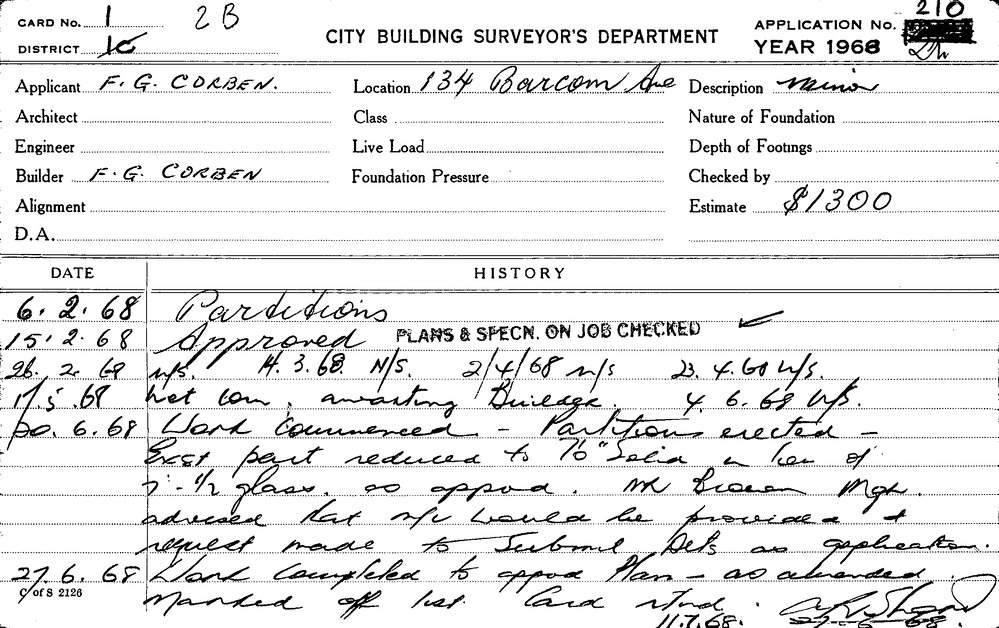 CARD No. 1 2B
DISTRICT 10
CITY BUILDING SURVEYOR'S DEPARTMENT
APPLICATION No. 210
YEAR 1968
Applicant F. G. CORBEN. Location 134 Barcom Ave Description Minor
Architect Class Nature of Foundation
Engineer Live Load Depth of Footings
Builder F. G. CORBEN Foundation Pressure Checked by
Alignment Estimate $1300
D.A.
DATE HISTORY
6. 2. 68 Partitions
15. 2. 68 Approved PLANS & SPECN. ON JOB CHECKED
26. 2. 68 N/S. 14. 3. 68. N/S. 2/4/68 N/S 23. 4. 68 N/S.
17. 5. 68 not com. awaiting Builder. 4. 6. 68 N/S.
20. 6. 68 Work Commenced - Partitions erected -
East part reduced to 7'0" Solid in lieu of
glass. as appvd. Mr Brown Mgr.
advised that would be provided &
request made to Submit Dets as application.
27. 6. 68 Work Completed to appvd Plan - as amended.
Marked off list. Card rtnd.
11.7.68. 27-6-68.
C of S 2126